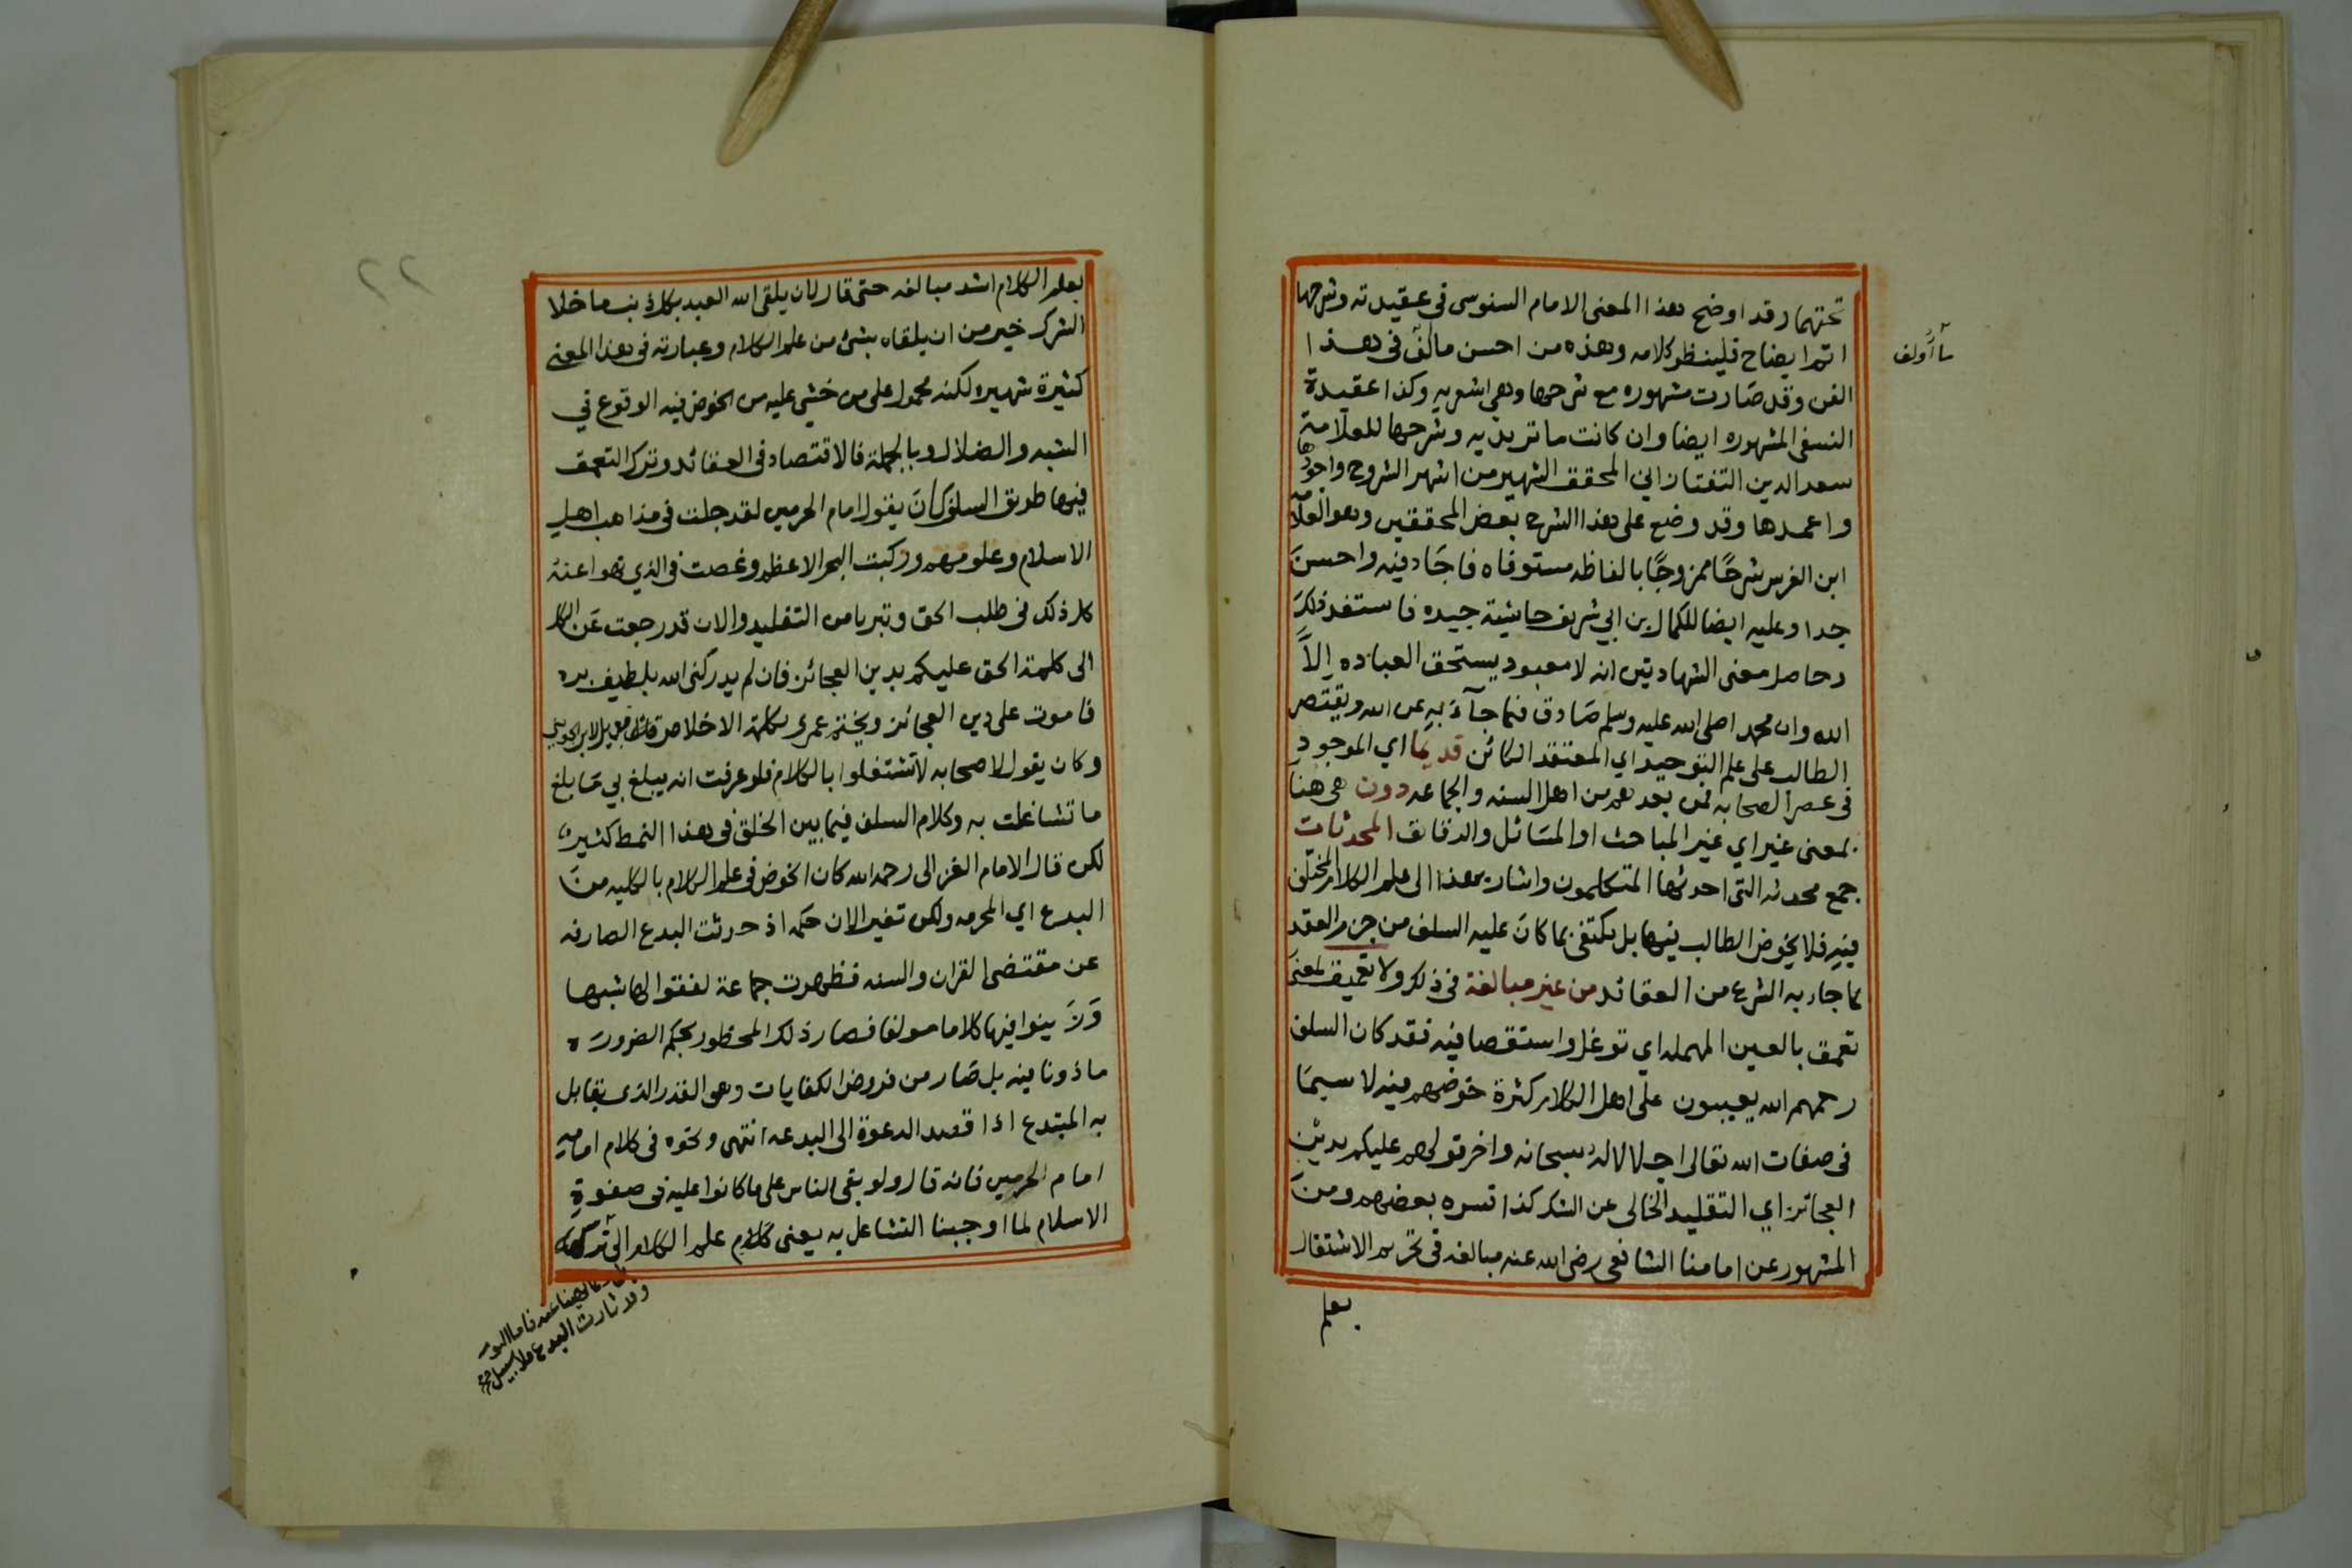 تحتهما وقد اوضح هذا المعنى الامام السنوسي في عقيدته وشرحها
اتم ايضاح فلينظر كلامه وهذه من احسن ما الف في هذا
الفن وقد صارت مشهوره مع شرحها وهي اشعريه وكذا عقيدة
النسفي المشهوره ايضا وان كانت ماتريديه وشرحها للعلامة
سعد الدين التفتازاني المحقق الشهير من اشهر الشروح واجودها
واعمدها وقد وضع على هذا الشرح بعض المحققين وهو العلامه
ابن الغرس شرحًا ممزوجًا بالفاظه مستوفاه فاجَاد فيه واحسنَ
جدا وعليه ايضا للكمال بن ابي شريف حاشية جيده فاستفد ذلك
وحاصل معنى الشهادتين انه لا معبود يستحق العباده اِلاَّ
الله وان محمدا صلى الله عليه وسلم صَادق فيما جآءَ بهِ عن الله ويقتصر
الطالب على علم التوحيد اي المعتقد الكائن قديمًا اي الموجود
في عصر الصحابه فمن بعدهم من اهل السنه والجماعه دون هي هنا
بمعنى غير اي غير المباحث او المسَائل والدقايق المحدثات
جمع محدثه التي احدثها المتكلمون واشار بهذا الى علم الكلام المختلق
فيهِ فلا يخوض الطالب فيها بل يكتفى بما كانَ عليه السلف من جزم العقد
بما جاء به الشرع من العقائد من غير مبالغة في ذلك ولا تعميق لمعنى
تعمق بالعين المهمله اي توغل واستقصا فيه فقد كان السلف
رحمهم الله يعيبون على اهل الكلام كثرة خوضهم فيه لا سيمَا
في صفات الله تعالى اجلالا له سبحانه واخر قولهم عليكم بدين
العجائز اي التقليد الخالى عن الشك كذا فسره بعضهم ومنَ
المشهور عن امامنا الشافعي رضي الله عنه مبالغه في تحريم الاشتغال
بعلم
بعلم الكلام اشد مبالغه حتى قال لان يلقى الله العبد بكل ذنب ما خلا
الشرك خير من ان يلقاه بشئ من علم الكلام وعبارته في هذا المعنى
كثيرة شهيره لكنه محمول على من خشي عليه من الخوض فيه الوقوع في
الشبه والضلال وبالجملة فالاقتصاد في العقائد وترك التعمق
فيها طريق السلف كانَ يقول امام الحرمين لقد جلت في مذاهب اهل
الاسلام وعلومهم وركبت البحر الاعظم وغصت في الذي نهوا عنهُ
كل ذلك في طلب الحق وتبريا من التقليد والان قد رجعت عَن الكل
الى كلمة الحق عليكم بدين العجائز فان لم يدركني الله بلطيف بره
فاموت على دين العجائز ويختم عمري بكلمة الاخلاص فالويل لابن الجويني
وكان يقول لاصحابه لاَ تشتغلوا بالكلام فلو عرفت انه يبلغ بي مَا بلغ
ما تشاغلت به وكلام السلف فيما بين الخلق في هذا النمط كثيره
لكن قال الامام الغزالى رحمه الله كان الخوض في علم الكلام بالكليه منَ
البدع اي المحرمه ولكن تغير الان حكمه اذ حدثت البدع الصارفه
عن مقتضى القران والسنه فظهرت جماعة لفقوا لها شبها
وَلاَ ينوا فيها كلاما مولفا فصار ذلك المحظور بحكم الضرورَه
ماذونا فيه بل صَار من فروض الكفايات وهو القدر الذي يقابل
به المبتدع اذا قصد الدعوة الى البدعه انتهى ونحوه في كلام امامه
امام الحرمين فانه قال ولو بقى الناس على ما كانوا عليه في صفوة
الاسلام لما اوجبنا التشاغل به يعنى كَلاَم علم الكلام
نهينا عنه فاما اليوم
وقد ثارت البدع فلا سبيل